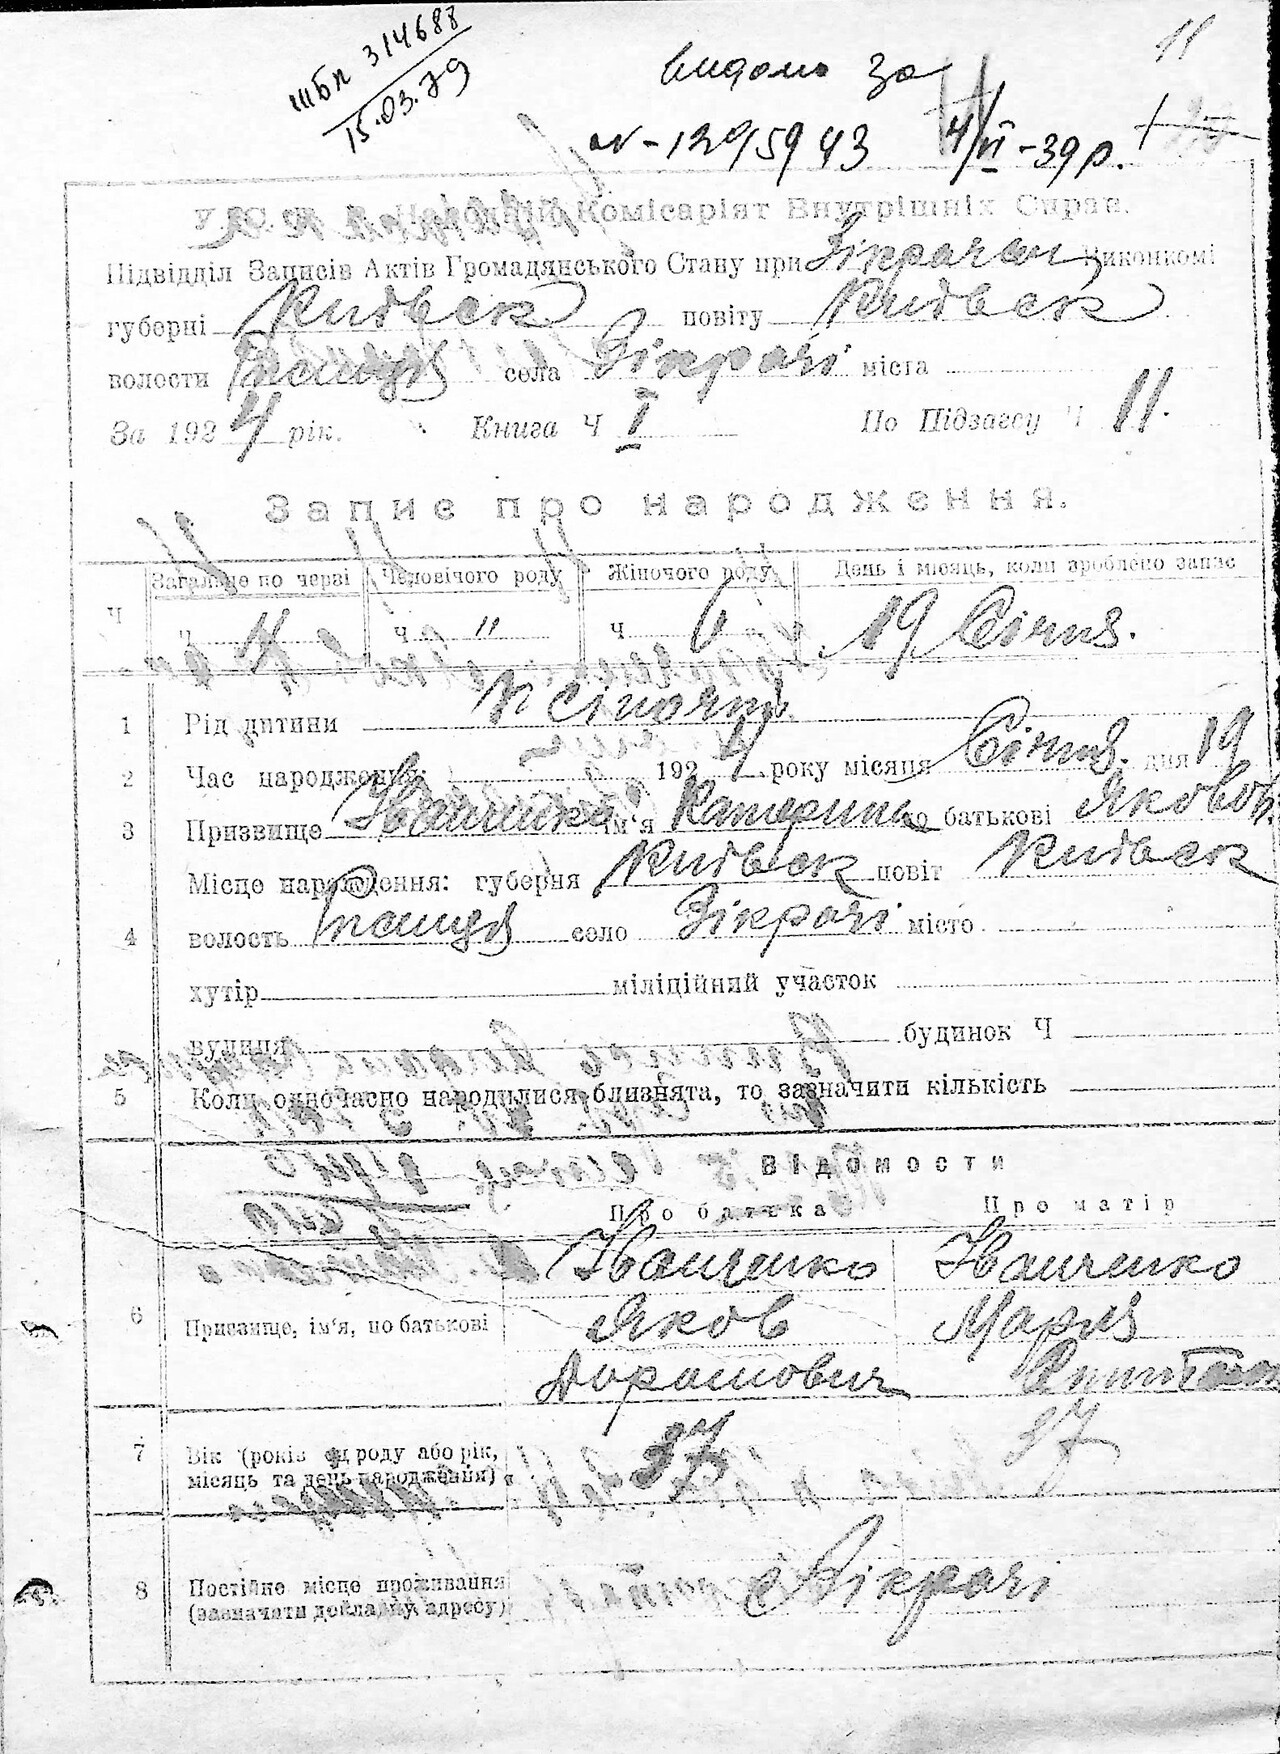 ШБП 314688
15.03.79
11
видано за
N-1295943 4/VI-39 р.
У.С.Р.Р. Народній Комісаріят Внутрішніх Справ.
Підвідділ Записів Актів Громадянського Стану при Зікрачан Виконкомі
губерні Киівськ повіту Киівськ
волости села Зікрачі міста
За 1924 рік. Книга Ч I По Підзагсу Ч 11.
Запис про народження.
Ч Загальне по черзі Чоловічого роду Жіночого роду День і місяць, коли зроблено запис
ч 11 ч " ч 6 19 Січня.
1 Рід дитини жіночий
2 Час народження 1924 року місяця Січня. дня 19
3 Призвище Іванченко ім'я Катерина по батькові Яковов
Місце народження: губерня Киівськ повіт Киівськ
4 волость село Зікрачі місто
хутір міліційний участок
вулиця будинок Ч
5 Коли одночасно народилися близнята, то зазначити кількість
ВІДОМОСТИ
Про батька Про матір
Іванченко Іванченко
6 Призвище, ім'я, по батькові Яков Мария
Дорошович
7 Вік (років від роду або рік, 37 37
місяць та день народження)
8 Постійне місце проживання с Зікрачі
(зазначати докладну адресу)